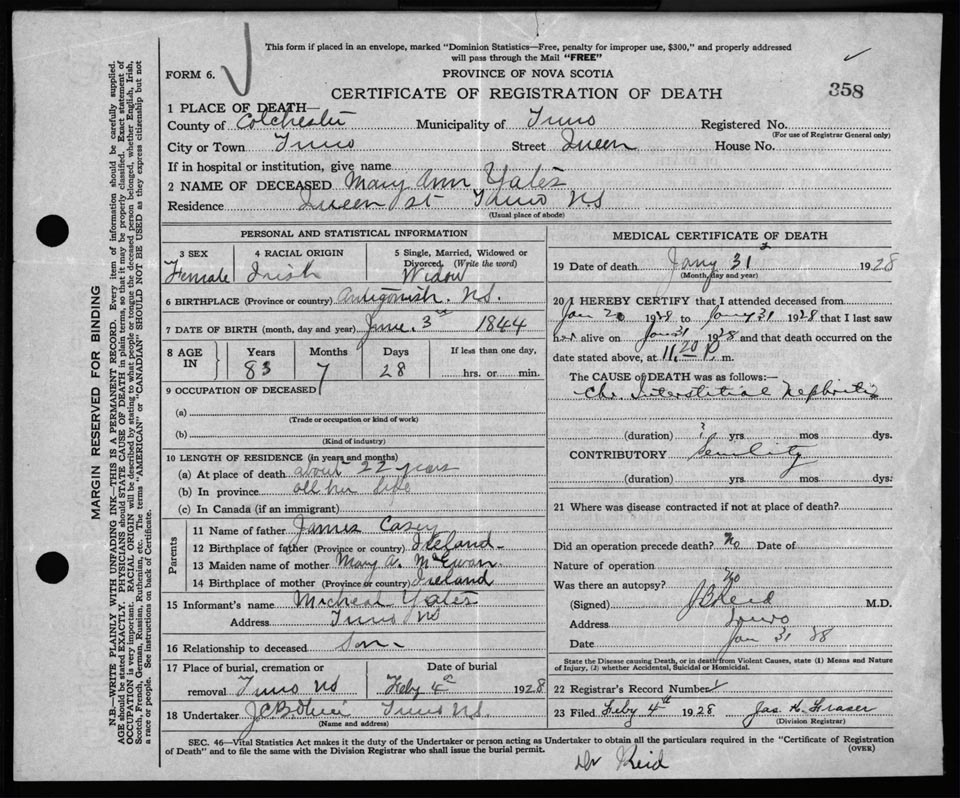 This form if placed in an envelope, marked "Dominion Statistics—Free, penalty for improper use, $300," and properly addressed
will pass through the Mail "FREE"
FORM 6.
PROVINCE OF NOVA SCOTIA
CERTIFICATE OF REGISTRATION OF DEATH
358
1 PLACE OF DEATH—
County of Colchester Municipality of Truro Registered No.
(For use of Registrar General only)
City or Town Truro Street Queen House No.
If in hospital or institution, give name
2 NAME OF DECEASED Mary Ann Yates
Residence Queen st Truro NS
(Usual place of abode)
PERSONAL AND STATISTICAL INFORMATION
3 SEX 4 RACIAL ORIGIN 5 Single, Married, Widowed or
Divorced. (Write the word)
Female Irish Widow
6 BIRTHPLACE (Province or country) Antigonish. N.S.
7 DATE OF BIRTH (month, day and year) June. 3rd 1844
8 AGE IN Years Months Days If less than one day,
83 7 28 hrs. or min.
9 OCCUPATION OF DECEASED
(a)
(Trade or occupation or kind of work)
(b)
(Kind of industry)
10 LENGTH OF RESIDENCE (in years and months)
(a) At place of death about 22 years
(b) In province all her life
(c) In Canada (if an immigrant)
Parents
11 Name of father James Casey
12 Birthplace of father (Province or country) Ireland
13 Maiden name of mother Mary A. McEwan.
14 Birthplace of mother (Province or country) Ireland
15 Informant's name Micheal Yates
Address Truro NS
16 Relationship to deceased Son
17 Place of burial, cremation or Date of burial
removal Truro NS Feby 4th 1928
18 Undertaker Truro N.S.
(Name and address)
MEDICAL CERTIFICATE OF DEATH
19 Date of death Jany 31st 1928
(Month, day and year)
20 I HEREBY CERTIFY that I attended deceased from
Jan 20 1928 to Jany 31 1928 that I last saw
her alive on Jan 31 1928 and that death occurred on the
date stated above, at 11.20 P. m.
The CAUSE of DEATH was as follows:—
Chr. Interstitial Nephritis
(duration) ? yrs. mos. dys.
CONTRIBUTORY Senility
(duration) yrs. mos. dys.
21 Where was disease contracted if not at place of death?
Did an operation precede death? No Date of
Nature of operation
Was there an autopsy? No
(Signed) J B Reid M.D.
Address Truro
Date Jan 31 28
State the Disease causing Death, or in death from Violent Causes, state (1) Means and Nature
of Injury, (2) whether Accidental, Suicidal or Homicidal.
22 Registrar's Record Number
23 Filed Feby 4th 1928 Jas. H. Fraser
(Division Registrar)
SEC. 46—Vital Statistics Act makes it the duty of the Undertaker or person acting as Undertaker to obtain all the particulars required in the "Certificate of Registration
of Death" and to file the same with the Division Registrar who shall issue the burial permit.
(OVER)
Dr Reid
MARGIN RESERVED FOR BINDING
N.B.—WRITE PLAINLY WITH UNFADING INK—THIS IS A PERMANENT RECORD. Every item of information should be carefully supplied.
AGE should be stated EXACTLY. PHYSICIANS should STATE CAUSE OF DEATH in plain terms, so that it may be properly classified. Exact statement of
OCCUPATION is very important. RACIAL ORIGIN will be described by stating to what people or tongue the deceased person belonged, whether English, Irish,
Scotch, French, German, Russian, Ruthenian, etc. The terms "AMERICAN" or "CANADIAN" SHOULD NOT BE USED as they express citizenship but not
a race or people. See instructions on back of Certificate.